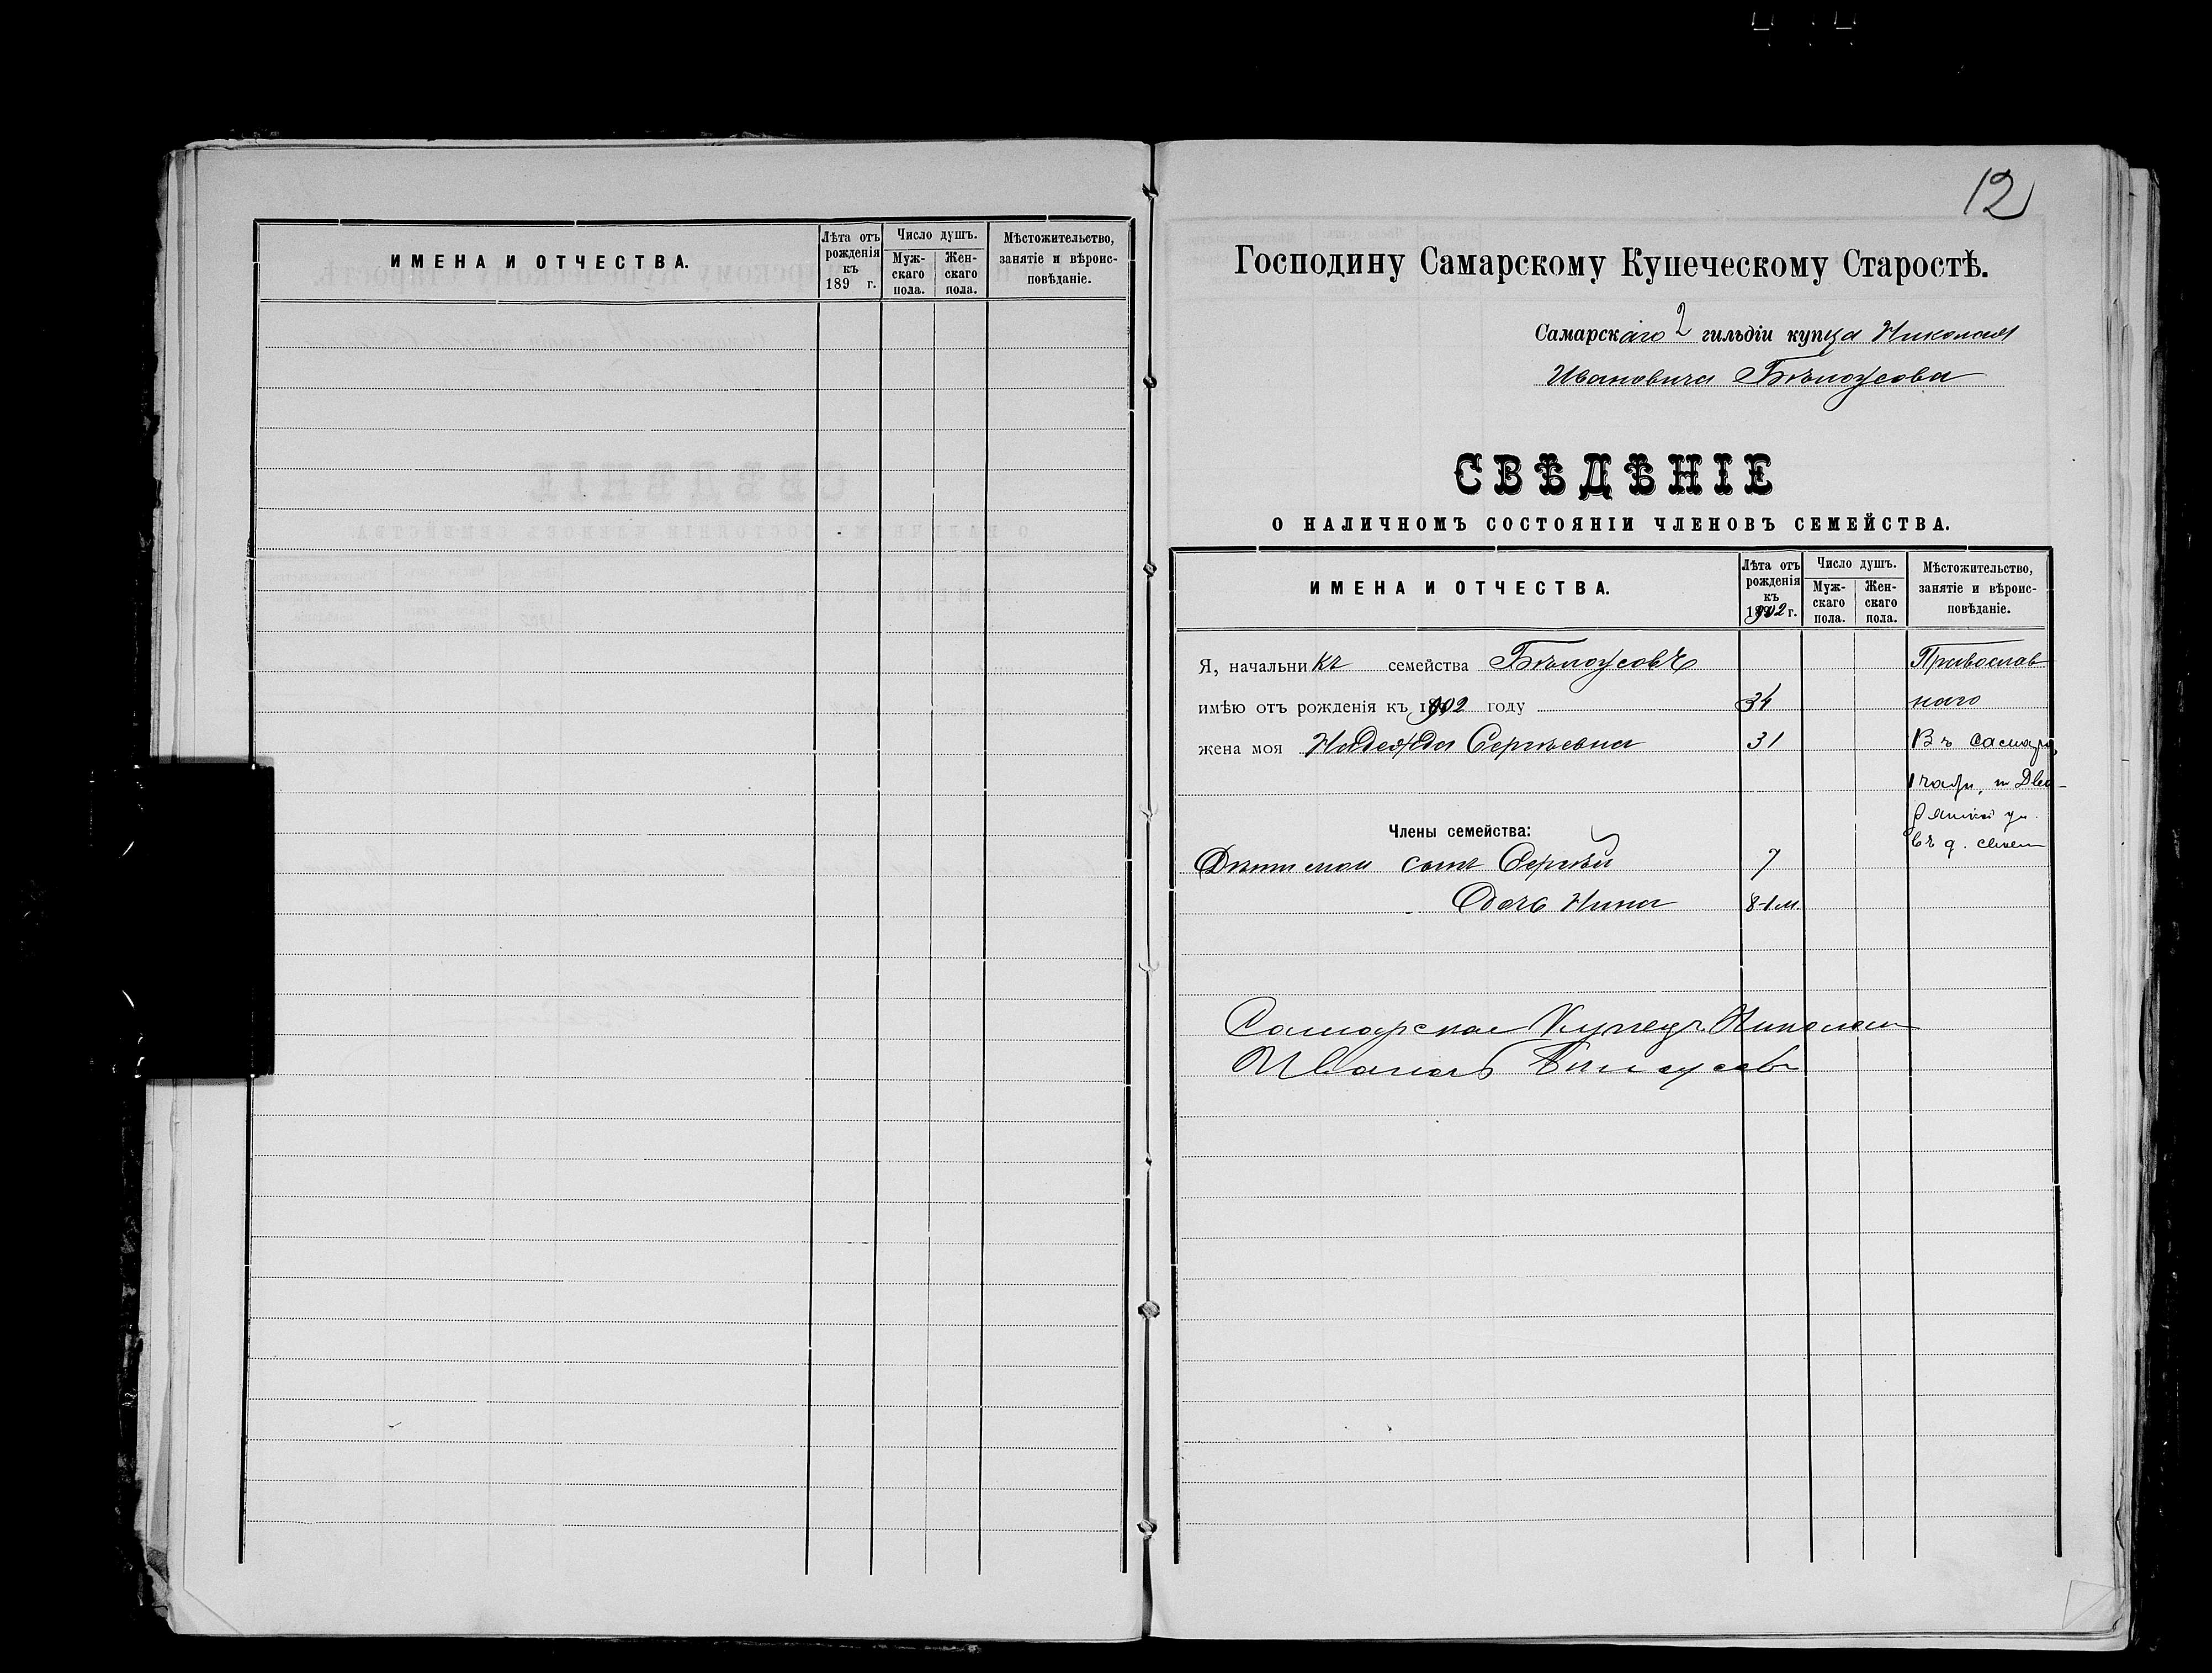 ИМЕНА И ОТЧЕСТВА.
Лѣта отъ рожденія къ 189 г.
Число душъ.
Мужскаго пола.
Женскаго пола.
Мѣстожительство, занятіе и вѣроисповѣданіе.
12
Господину Самарскому Купеческому Старостѣ.
Самарскаго 2 гильдіи купца Николая
Ивановича Бѣлоусова
СВѢДѢНІЕ
О НАЛИЧНОМЪ СОСТОЯНІИ ЧЛЕНОВЪ СЕМЕЙСТВА.
ИМЕНА И ОТЧЕСТВА.
Лѣта отъ
рожденія
къ
1902 г.
Число душъ.
Муж-
скаго
пола.
Жен-
скаго
пола.
Мѣстожительство,
занятіе и вѣроис-
повѣданіе.
Я, начальникъ семейства Бѣлоусовъ Православ
имѣю отъ рожденія къ 1902 году 34 наго
жена моя Надежда Сергѣевна 31 Въ Самарѣ,
1 части, по Дво-
рянской ул.
въ д.
Члены семейства:
Дѣти мои сынъ Сергѣй 7
Дочь Нина 8 м.
Самарскай Купецъ Николай
Ивановъ Бѣлоусовъ